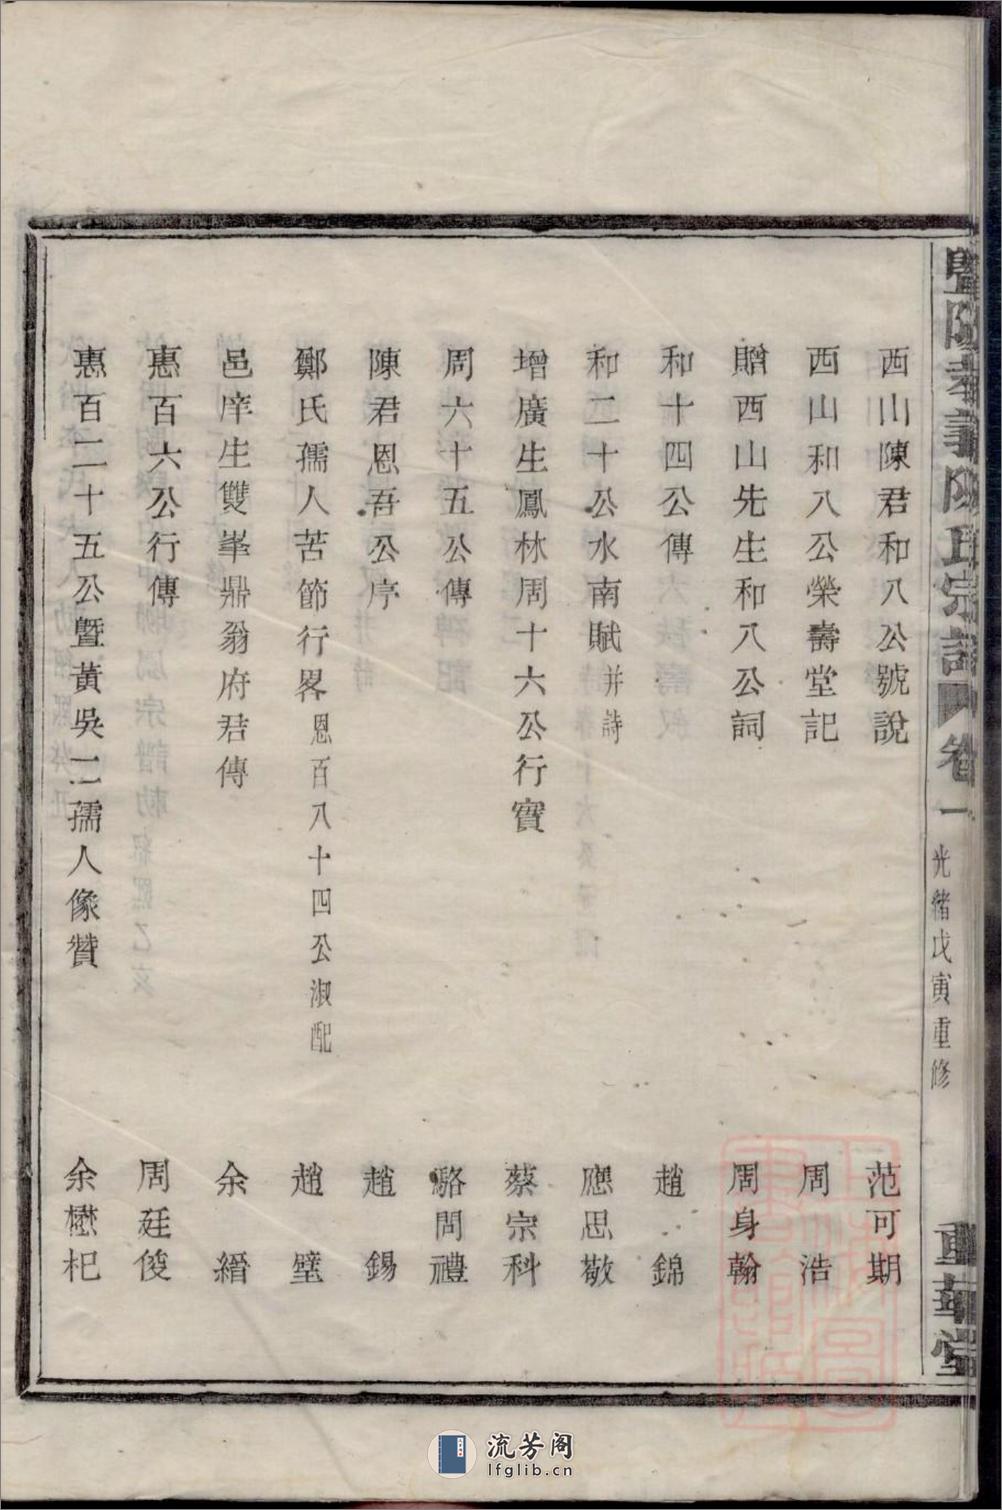 暨陽孝義陳氏宗譜 卷一 光緒戊寅重修 重華堂
西山陳君和八公號說 范可期
西山和八公榮壽堂記 周浩
贈西山先生和八公詞 周身翰
和十四公傳 趙錦
和二十公水南賦并詩 應思敬
增廣生鳳林周十六公行實 蔡宗科
周六十五公傳 駱問禮
陳君恩吾公序 趙錫
鄭氏孺人苦節行畧恩百八十四公淑配 趙壁
邑庠生雙峯鼎翁府君傳 余縉
惪百六公行傳 周廷俊
惪百二十五公曁黃吳二孺人像贊 余懋杞
流芳阁
lfglib.cn